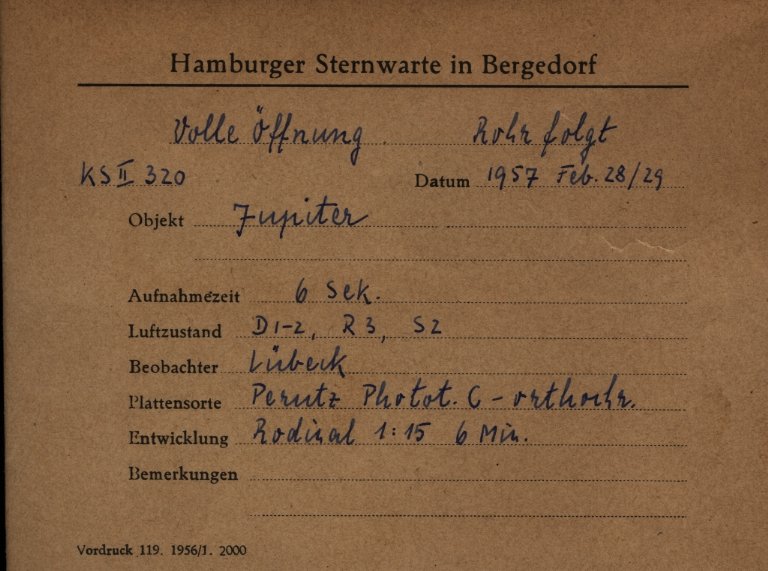 Hamburger Sternwarte in Bergedorf
Volle Öffnung Rohr folgt
KS II 320 Datum 1957 Feb. 28/29
Objekt Jupiter
Aufnahmezeit 6 Sek.
Luftzustand D1-2, R3, S2
Beobachter Lübeck
Plattensorte Perutz Photot. C - orthochr.
Entwicklung Rodinal 1:15 6 Min.
Bemerkungen
Vordruck 119. 1956/1. 2000